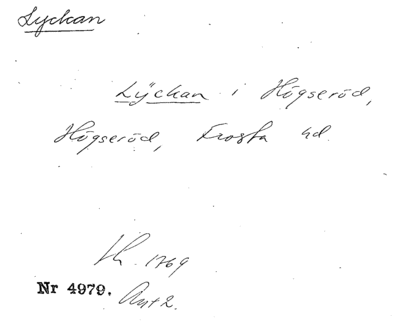 Lyckan
Lÿckan i Högseröd,
Högseröd, Frosta hd.
Lh. 1769
Nr 4979. Ant 2.